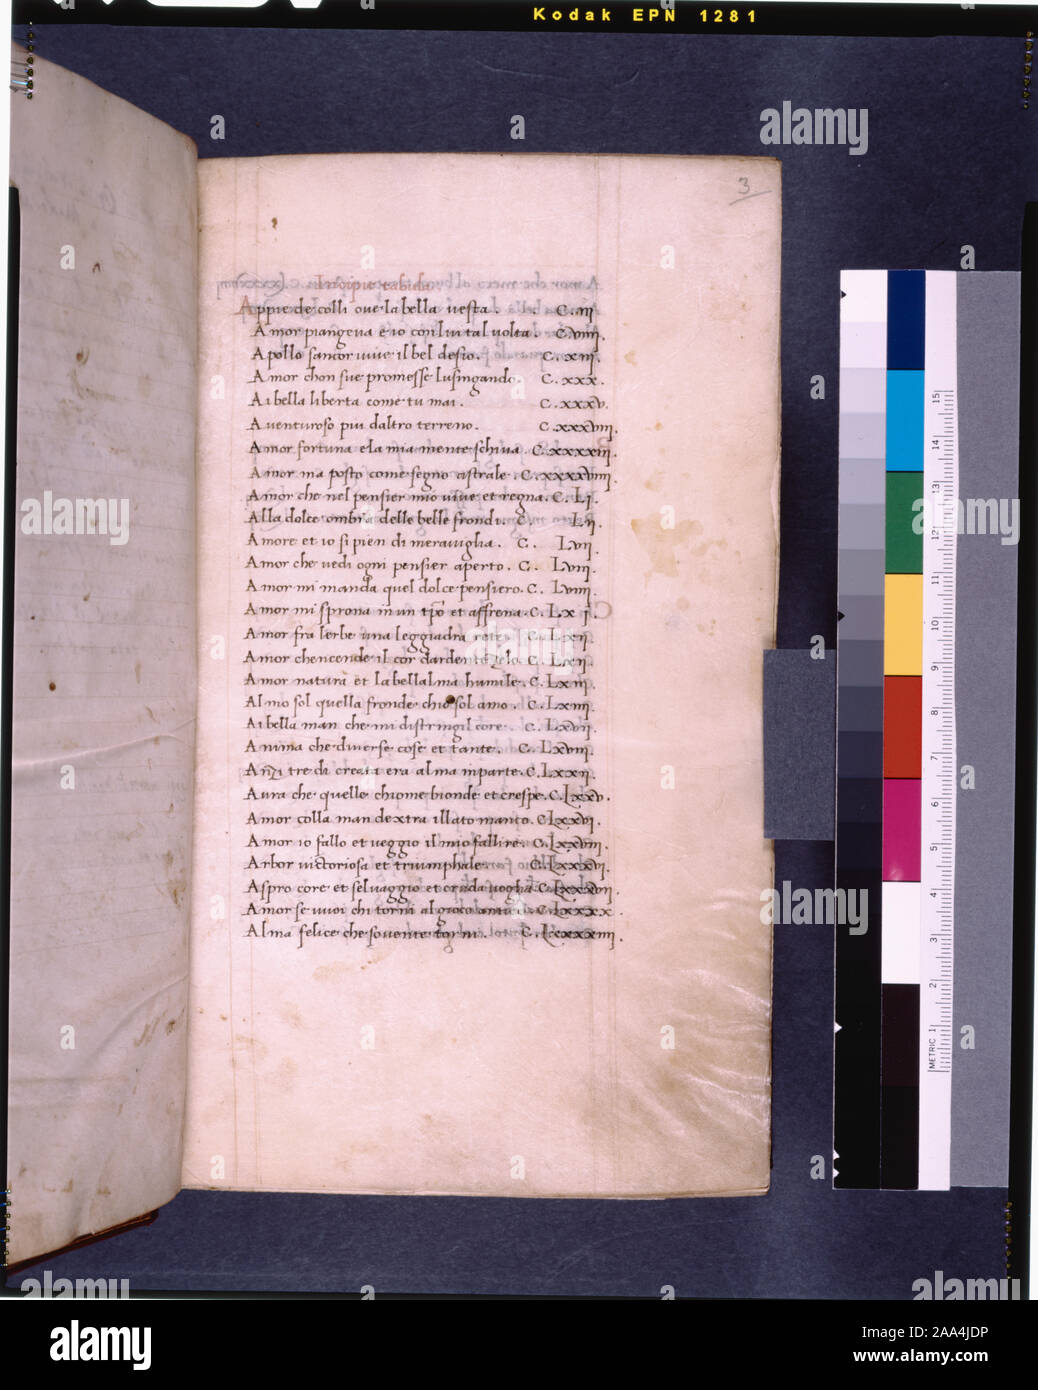 Kodak EPN 1281
3
Incipit tabula
Appie de colli oue la bella uesta. C. iij
Amor piangeua e io con lui tal uolta. C. viiij.
Apollo sancor uiue il bel desio. C. xiij.
Amor chon sue promesse lusingando. C. xxx.
Ai bella liberta come tu mai. C. xxxv.
Auenturoso piu daltro terreno. C. xxxviiij.
Amor fortuna e la mia mente schiua. C. xxxxiij.
Amor ma posto come segno astrale. C. xxxxviiij.
Amor che nel pensier mio uiue et regna. C. Lj.
Alla dolce ombra delle belle frondi. C. Lij.
Amore et io si pien di merauiglia. C. Lvij.
Amor che uedi ogni pensier aperto. C. Lviij.
Amor mi manda quel dolce pensiero. C. Lviiij.
Amor mi sprona in un tpo et affrena. C. Lxj.
Amor fra lerbe una leggiadra rete. C. Lxij.
Amor chencende il cor dardente zelo. C. Lxij.
Amor natura et la bellalma humile. C. Lxiij.
Almo sol quella fronde chio sol amo. C. Lxiiij.
Ai bella man che mi distringil core. C. Lxvij.
Anima che diuerse cose et tante. C. Lxviij.
Anzi tre di creata era alma in parte. C. Lxxij.
Aura che quelle chiome bionde et crespe. C. Lxxv.
Amor colla man dextra il lato manco. C Lxxvj.
Amor io fallo et ueggio il mio fallire. C. Lxxviij.
Arbor uictoriosa et triumphale. C. Lxxxvj.
Aspro core et seluaggio et cruda uoglia C. Lxxxvij.
Amor se uuoi chi torni al gioco antico. C. Lxxxx.
Alma felice che souente torni. C.
15
14
13
12
11
10
9
8
7
6
5
4
3
2
METRIC 1
alamy
Image ID: 2AA4JDP
www.alamy.com